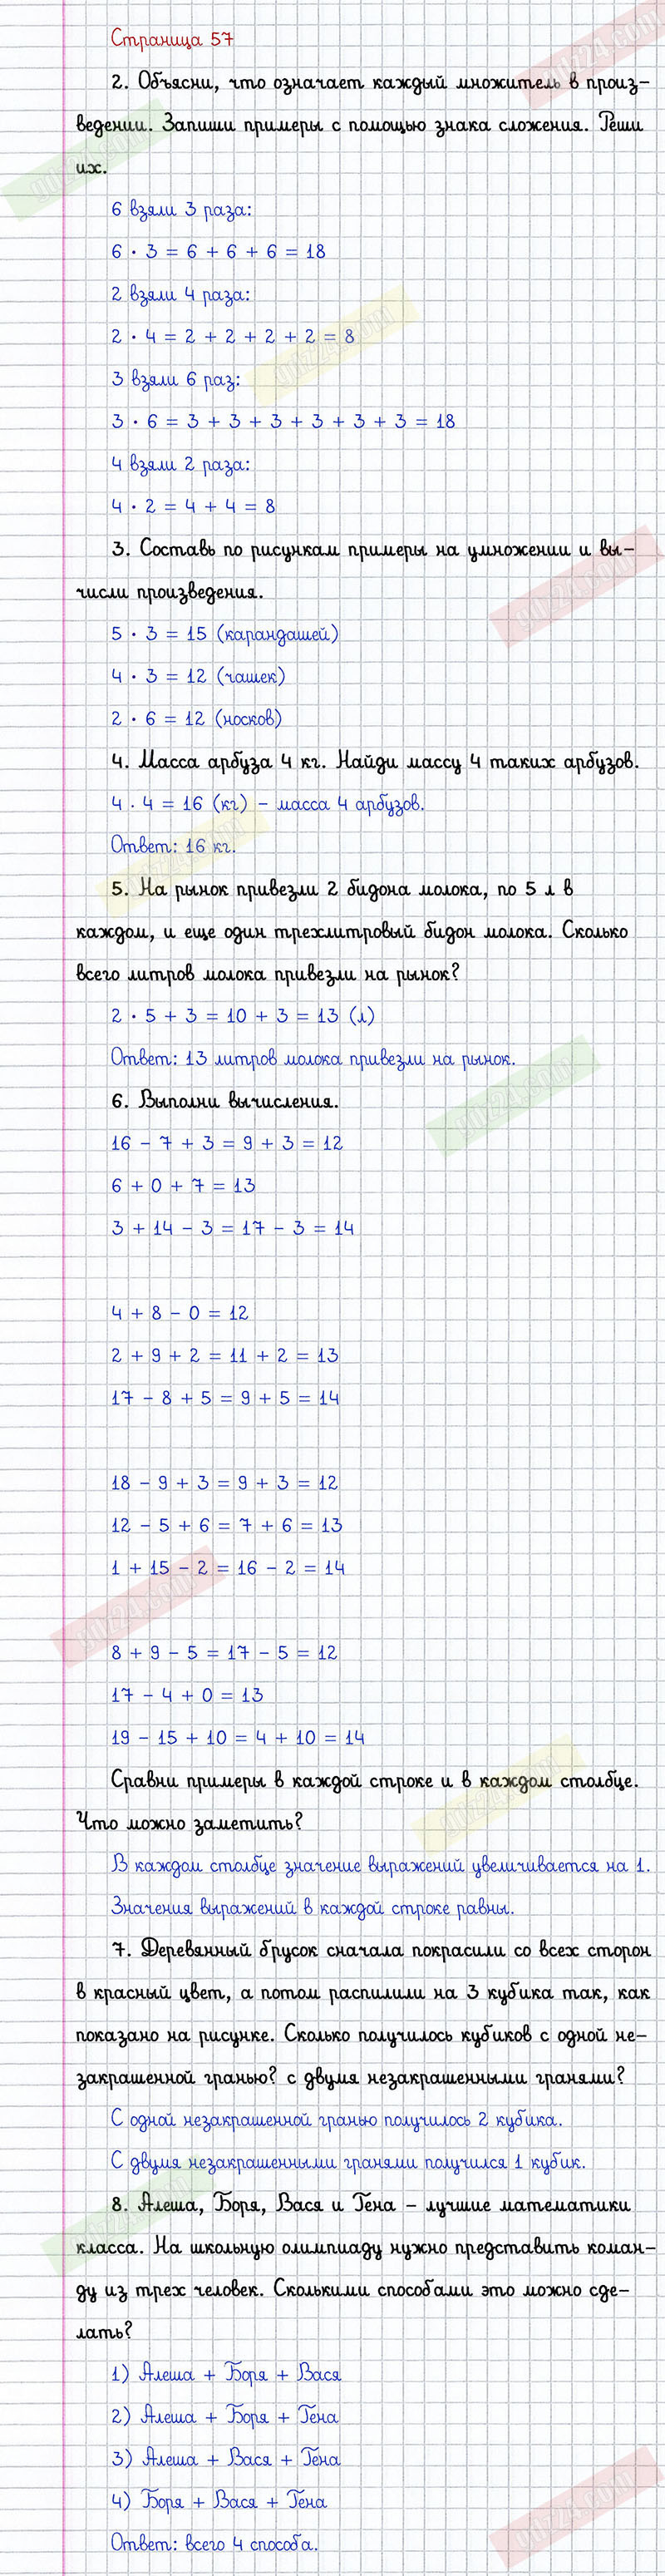 Страница 57
2. Объясни, что означает каждый множитель в произ-
ведении. Запиши примеры с помощью знака сложения. Реши
их.
6 взяли 3 раза:
6 · 3 = 6 + 6 + 6 = 18
2 взяли 4 раза:
2 · 4 = 2 + 2 + 2 + 2 = 8
3 взяли 6 раз:
3 · 6 = 3 + 3 + 3 + 3 + 3 + 3 = 18
4 взяли 2 раза:
4 · 2 = 4 + 4 = 8
3. Составь по рисункам примеры на умножении и вы-
числи произведения.
5 · 3 = 15 (карандашей)
4 · 3 = 12 (чашек)
2 · 6 = 12 (носков)
4. Масса арбуза 4 кг. Найди массу 4 таких арбузов.
4 · 4 = 16 (кг) – масса 4 арбузов.
Ответ: 16 кг.
5. На рынок привезли 2 бидона молока, по 5 л в
каждом, и еще один трехлитровый бидон молока. Сколько
всего литров молока привезли на рынок?
2 · 5 + 3 = 10 + 3 = 13 (л)
Ответ: 13 литров молока привезли на рынок.
6. Выполни вычисления.
16 – 7 + 3 = 9 + 3 = 12
6 + 0 + 7 = 13
3 + 14 – 3 = 17 – 3 = 14
4 + 8 – 0 = 12
2 + 9 + 2 = 11 + 2 = 13
17 – 8 + 5 = 9 + 5 = 14
18 – 9 + 3 = 9 + 3 = 12
12 – 5 + 6 = 7 + 6 = 13
1 + 15 – 2 = 16 – 2 = 14
8 + 9 – 5 = 17 – 5 = 12
17 – 4 + 0 = 13
19 – 15 + 10 = 4 + 10 = 14
Сравни примеры в каждой строке и в каждом столбце.
Что можно заметить?
В каждом столбце значение выражений увеличивается на 1.
Значения выражений в каждой строке равны.
7. Деревянный брусок сначала покрасили со всех сторон
в красный цвет, а потом распилили на 3 кубика так, как
показано на рисунке. Сколько получилось кубиков с одной не-
закрашенной гранью? с двумя незакрашенными гранями?
С одной незакрашенной гранью получилось 2 кубика.
С двумя незакрашенными гранями получился 1 кубик.
8. Алеша, Боря, Вася и Гена – лучшие математики
класса. На школьную олимпиаду нужно представить коман-
ду из трех человек. Сколькими способами это можно сде-
лать?
1) Алеша + Боря + Вася
2) Алеша + Боря + Гена
3) Алеша + Вася + Гена
4) Боря + Вася + Гена
Ответ: всего 4 способа.